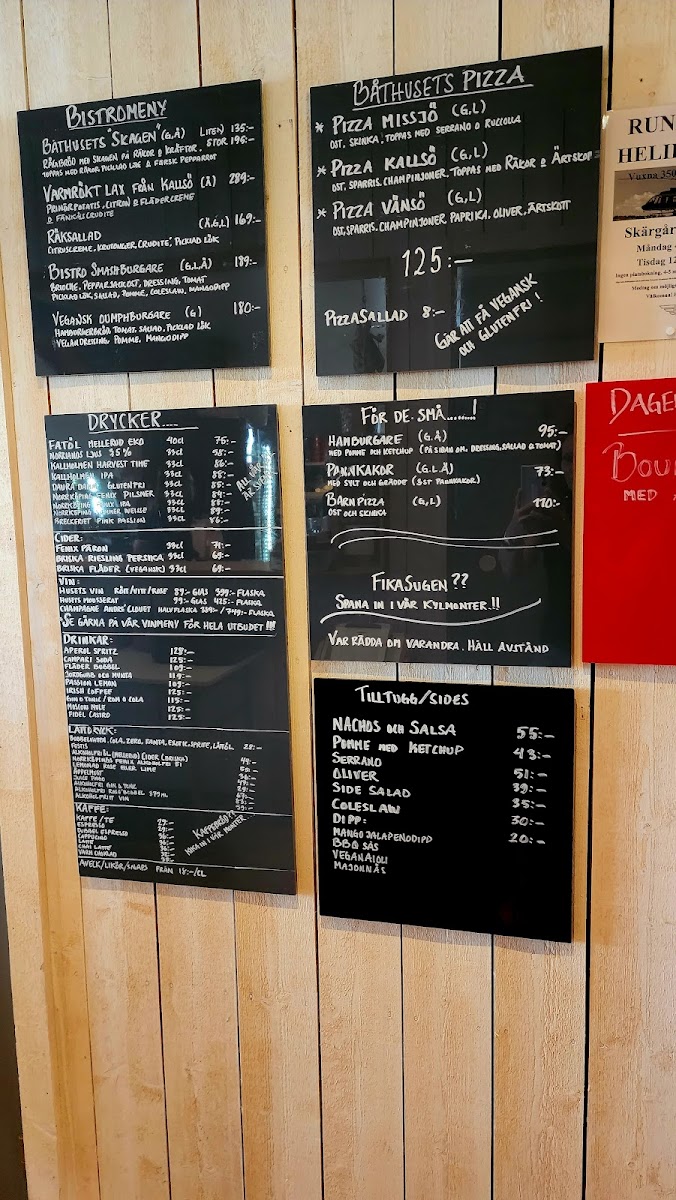 BISTROMENY
BÅTHUSETS "SKAGEN" (G,Ä) LITEN 135:-
RÅGBRÖD MED SKAGEN PÅ RÄKOR & KRÄFTOR, STOR 196:-
TOPPAS MED RÄKOR, PICKLAD LÖK & FÄRSK PEPPARROT
VARMRÖKT LAX FRÅN KALLSÖ (Ä) 289:-
PRIMÖRPOTATIS, CITRON & FLÄDERCREME
& FÄNKÅLSCRUDITE
RÄKSALLAD (Ä,G,L) 169:-
CITRUSCREME, KRUTONGER, CRUDITE, PICKLAD LÖK
BISTRO SMASHBURGARE (G,L,Ä) 189:-
BRIOCHE, PEPPARJACKOST, DRESSING, TOMAT
PICKLAD LÖK, SALLAD, POMME, COLESLAW, MANGODIPP
VEGANSK OUMPHBURGARE (G) 180:-
HAMBURGERBRÖD, TOMAT, SALLAD, PICKLAD LÖK
VEGANDRESSING, POMME, MANGODIPP
BÅTHUSETS PIZZA
* PIZZA MISSJÖ (G,L)
OST, SKINKA, TOPPAS MED SERRANO & RUCCOLA
* PIZZA KALLSÖ (G,L)
OST, SPARRIS, CHAMPINJONER, TOPPAS MED RÄKOR & ÄRTSKOTT
* PIZZA VÅNSÖ (G,L)
OST, SPARRIS, CHAMPINJONER, PAPRIKA, OLIVER, ÄRTSKOTT
125:-
PIZZASALLAD 8:-
GÅR ATT FÅ VEGANSK
OCH GLUTENFRI!
RUN
HELI
Vuxna 350
Skärgår
Måndag
Tisdag 12
DRYCKER....
FATÖL MELLERUD EKO 40cl 76:-
NORRLANDS LJUS 3,5% 33cl 58:-
KALLHOLMEN HARVEST TIME 33cl 86:-
KALLHOLMEN IPA 33cl 88:-
DAURA DAMM GLUTENFRI 33cl 85:-
NORRKÖPING FENIX PILSNER 33cl 84:-
NORRKÖPING FENIX IPA 33cl 88:-
NORRKÖPING SOMMAR WEISSE 33cl 89:-
BRECKERIET PINK PASSION 33cl 86:-
ALL VÅR
ÖL
ÄR SVENSK
CIDER:
FENIX PÄRON 33cl 71:-
BRISKA RIESLING PERSIKA 33cl 69:-
BRISKA FLÄDER (VEGANISK) 33cl 69:-
VIN:
HUSETS VIN RÖTT/VITT/ROSÉ 89:- GLAS 399:- FLASKA
HUSETS MOUSSERAT 99:- GLAS 425:- FLASKA
CHAMPAGNE ANDRÉ CLOUET HALVFLASKA 389:- / 749:- FLASKA
SE GÄRNA PÅ VÅR VINMENY FÖR HELA UTBUDET!!!
DRINKAR:
APEROL SPRITZ 128:-
CAMPARI SODA 125:-
FLÄDER BUBBEL 109:-
JORDGUBB OCH MYNTA 119:-
PASSION LEMON 109:-
IRISH COFFEE 125:-
GIN & TONIC / ROM & COLA 115:-
MOSCOW MULE 125:-
FIDEL CASTRO 125:-
LÄTTDRYCK:
BUBBELVATTEN, COLA, ZERO, FANTA, EXOTIC, SPRITE, LÄTTÖL 28:-
FESTIS
ALKOHOLFRI ÖL (MELLERUD) CIDER (BRISKA)
NORRKÖPINGS FENIX ALKOHOLFRI
LEMONAD ROSÉ ELLER LIME
ÄPPELMUST
ALKOHOLFRI GIN & TONIC
ALKOHOLFRI ROSÉ BUBBEL 375ML
ALKOHOLFRITT VIN
KAFFE:
KAFFE/TE 29:-
ESPRESSO 29:-
DUBBEL ESPRESSO 29:-
CAPPUCINO 36:-
LATTE 36:-
CHAI LATTE 36:-
VARM CHOKLAD 38:-
KAFFEBRÖD?
KIKA IN I VÅR MONTER
AVECK/LIKÖR/SNAPS FRÅN 18:-/CL
FÖR DE SMÅ......!
HAMBURGARE (G,Ä) 95:-
MED POMME OCH KETCHUP (PÅ SIDAN OM, DRESSING, SALLAD & TOMAT)
PANNKAKOR (G,L,Ä) 73:-
MED SYLT OCH GRÄDDE (3ST PANNKAKOR)
BARNPIZZA (G,L) 110:-
OST OCH SKINKA
FIKASUGEN??
SPANA IN I VÅR KYLMONTER.!!
VAR RÄDDA OM VARANDRA. HÅLL AVSTÅND
DAGE
BOU
MED
TILLTUGG/SIDES
NACHOS OCH SALSA 55:-
POMME MED KETCHUP 48:-
SERRANO
OLIVER 51:-
SIDE SALAD 39:-
COLESLAW 35:-
DIPP: 30:-
MANGO JALAPENODIPP 20:-
BBQ SÅS
VEGANAIOLI
MAJONNÄS